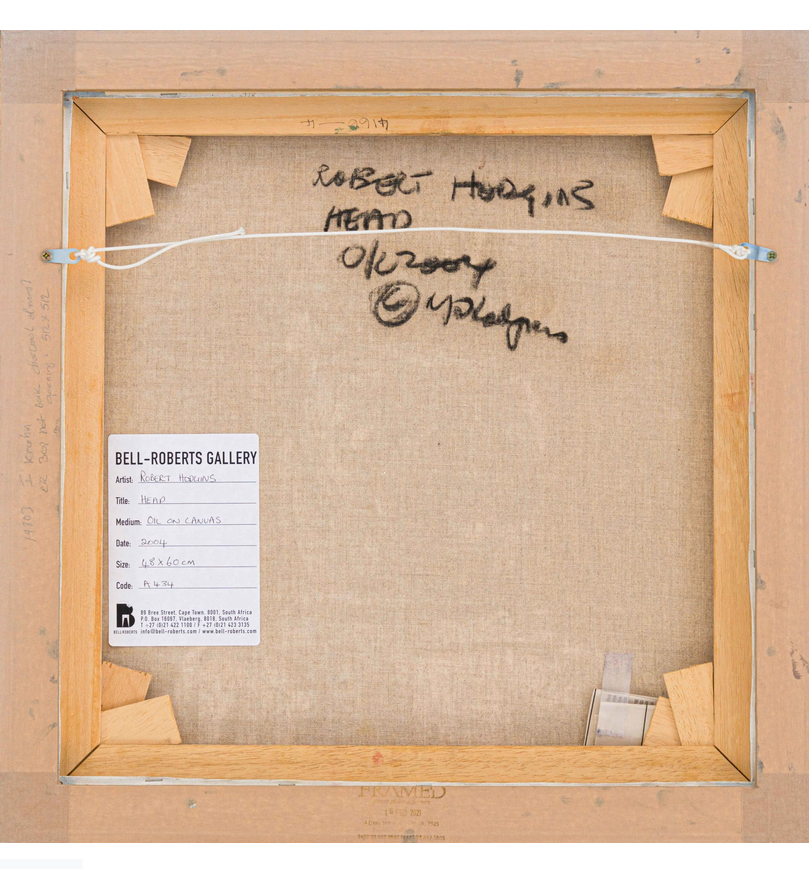 ROBERT HODGINS
HEAD
O/C 2004
©
BELL-ROBERTS GALLERY
Artist: ROBERT HODGINS
Title: HEAD
Medium: OIL ON CANVAS
Date: 2004
Size: 48 X 60 cm
Code: A 434
89 Bree Street, Cape Town, 8001, South Africa
P.O. Box 16067, Vlaeberg, 8018, South Africa
T +27 (0)21 422 1100 / F +27 (0)21 423 3135
BELL-ROBERTS info@bell-roberts.com / www.bell-roberts.com
FRAMED